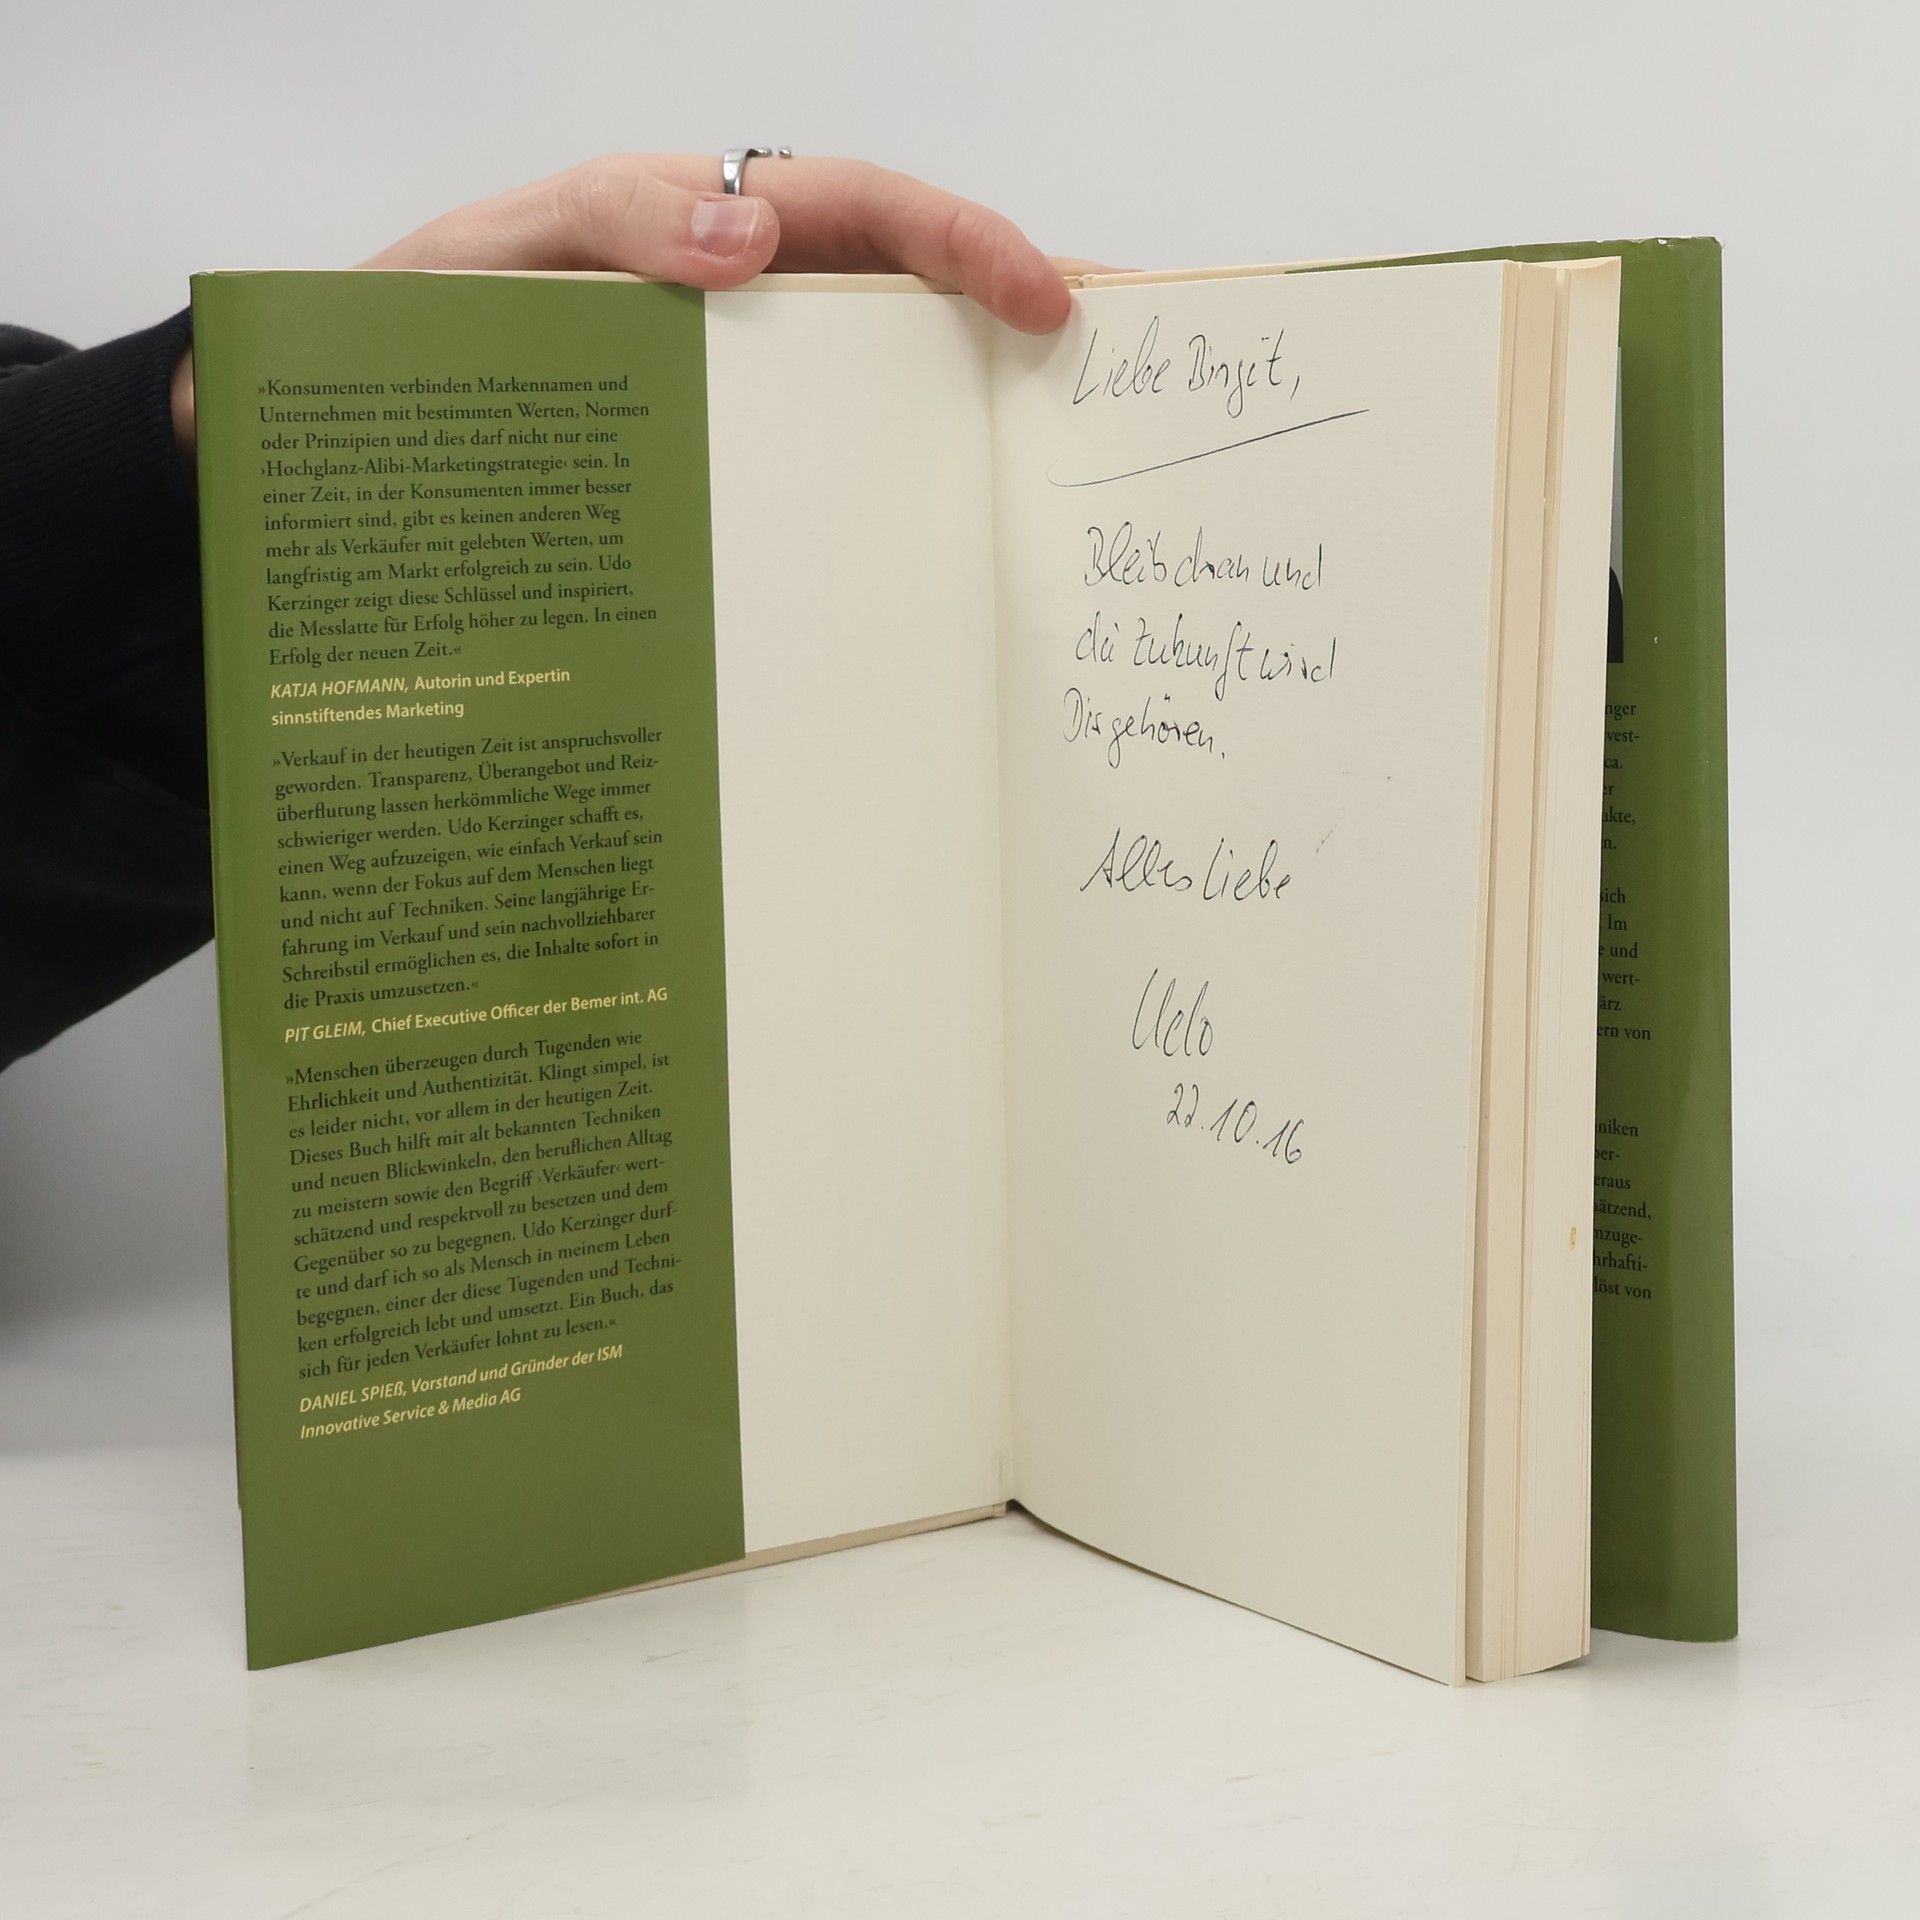 »Konsumenten verbinden Markennamen und
Unternehmen mit bestimmten Werten, Normen
oder Prinzipien und dies darf nicht nur eine
›Hochglanz-Alibi-Marketingstrategie‹ sein. In
einer Zeit, in der Konsumenten immer besser
informiert sind, gibt es keinen anderen Weg
mehr als Verkäufer mit gelebten Werten, um
langfristig am Markt erfolgreich zu sein. Udo
Kerzinger zeigt diese Schlüssel und inspiriert,
die Messlatte für Erfolg höher zu legen. In einen
Erfolg der neuen Zeit.«
KATJA HOFMANN, Autorin und Expertin
sinnstiftendes Marketing
»Verkauf in der heutigen Zeit ist anspruchsvoller
geworden. Transparenz, Überangebot und Reiz-
überflutung lassen herkömmliche Wege immer
schwieriger werden. Udo Kerzinger schafft es,
einen Weg aufzuzeigen, wie einfach Verkauf sein
kann, wenn der Fokus auf dem Menschen liegt
und nicht auf Techniken. Seine langjährige Er-
fahrung im Verkauf und sein nachvollziehbarer
Schreibstil ermöglichen es, die Inhalte sofort in
die Praxis umzusetzen.«
PIT GLEIM, Chief Executive Officer der Bemer int. AG
»Menschen überzeugen durch Tugenden wie
Ehrlichkeit und Authentizität. Klingt simpel, ist
es leider nicht, vor allem in der heutigen Zeit.
Dieses Buch hilft mit alt bekannten Techniken
und neuen Blickwinkeln, den beruflichen Alltag
zu meistern sowie den Begriff ›Verkäufer‹ wert-
schätzend und respektvoll zu besetzen und dem
Gegenüber so zu begegnen. Udo Kerzinger durf-
te und darf ich so als Mensch in meinem Leben
begegnen, einer der diese Tugenden und Techni-
ken erfolgreich lebt und umsetzt. Ein Buch, das
sich für jeden Verkäufer lohnt zu lesen.«
DANIEL SPIEß, Vorstand und Gründer der ISM
Innovative Service & Media AG
Liebe Birgit,
Bleib dran und
die Zukunft wird
Dir gehören.
Alles Liebe
Udo
22.10.16
nger
vest-
ca.
er
ukte,
n.
sich
Im
e und
wert-
ärz
ern von
niken
ber-
eraus
hätzend,
nzuge-
hrhafti-
löst von